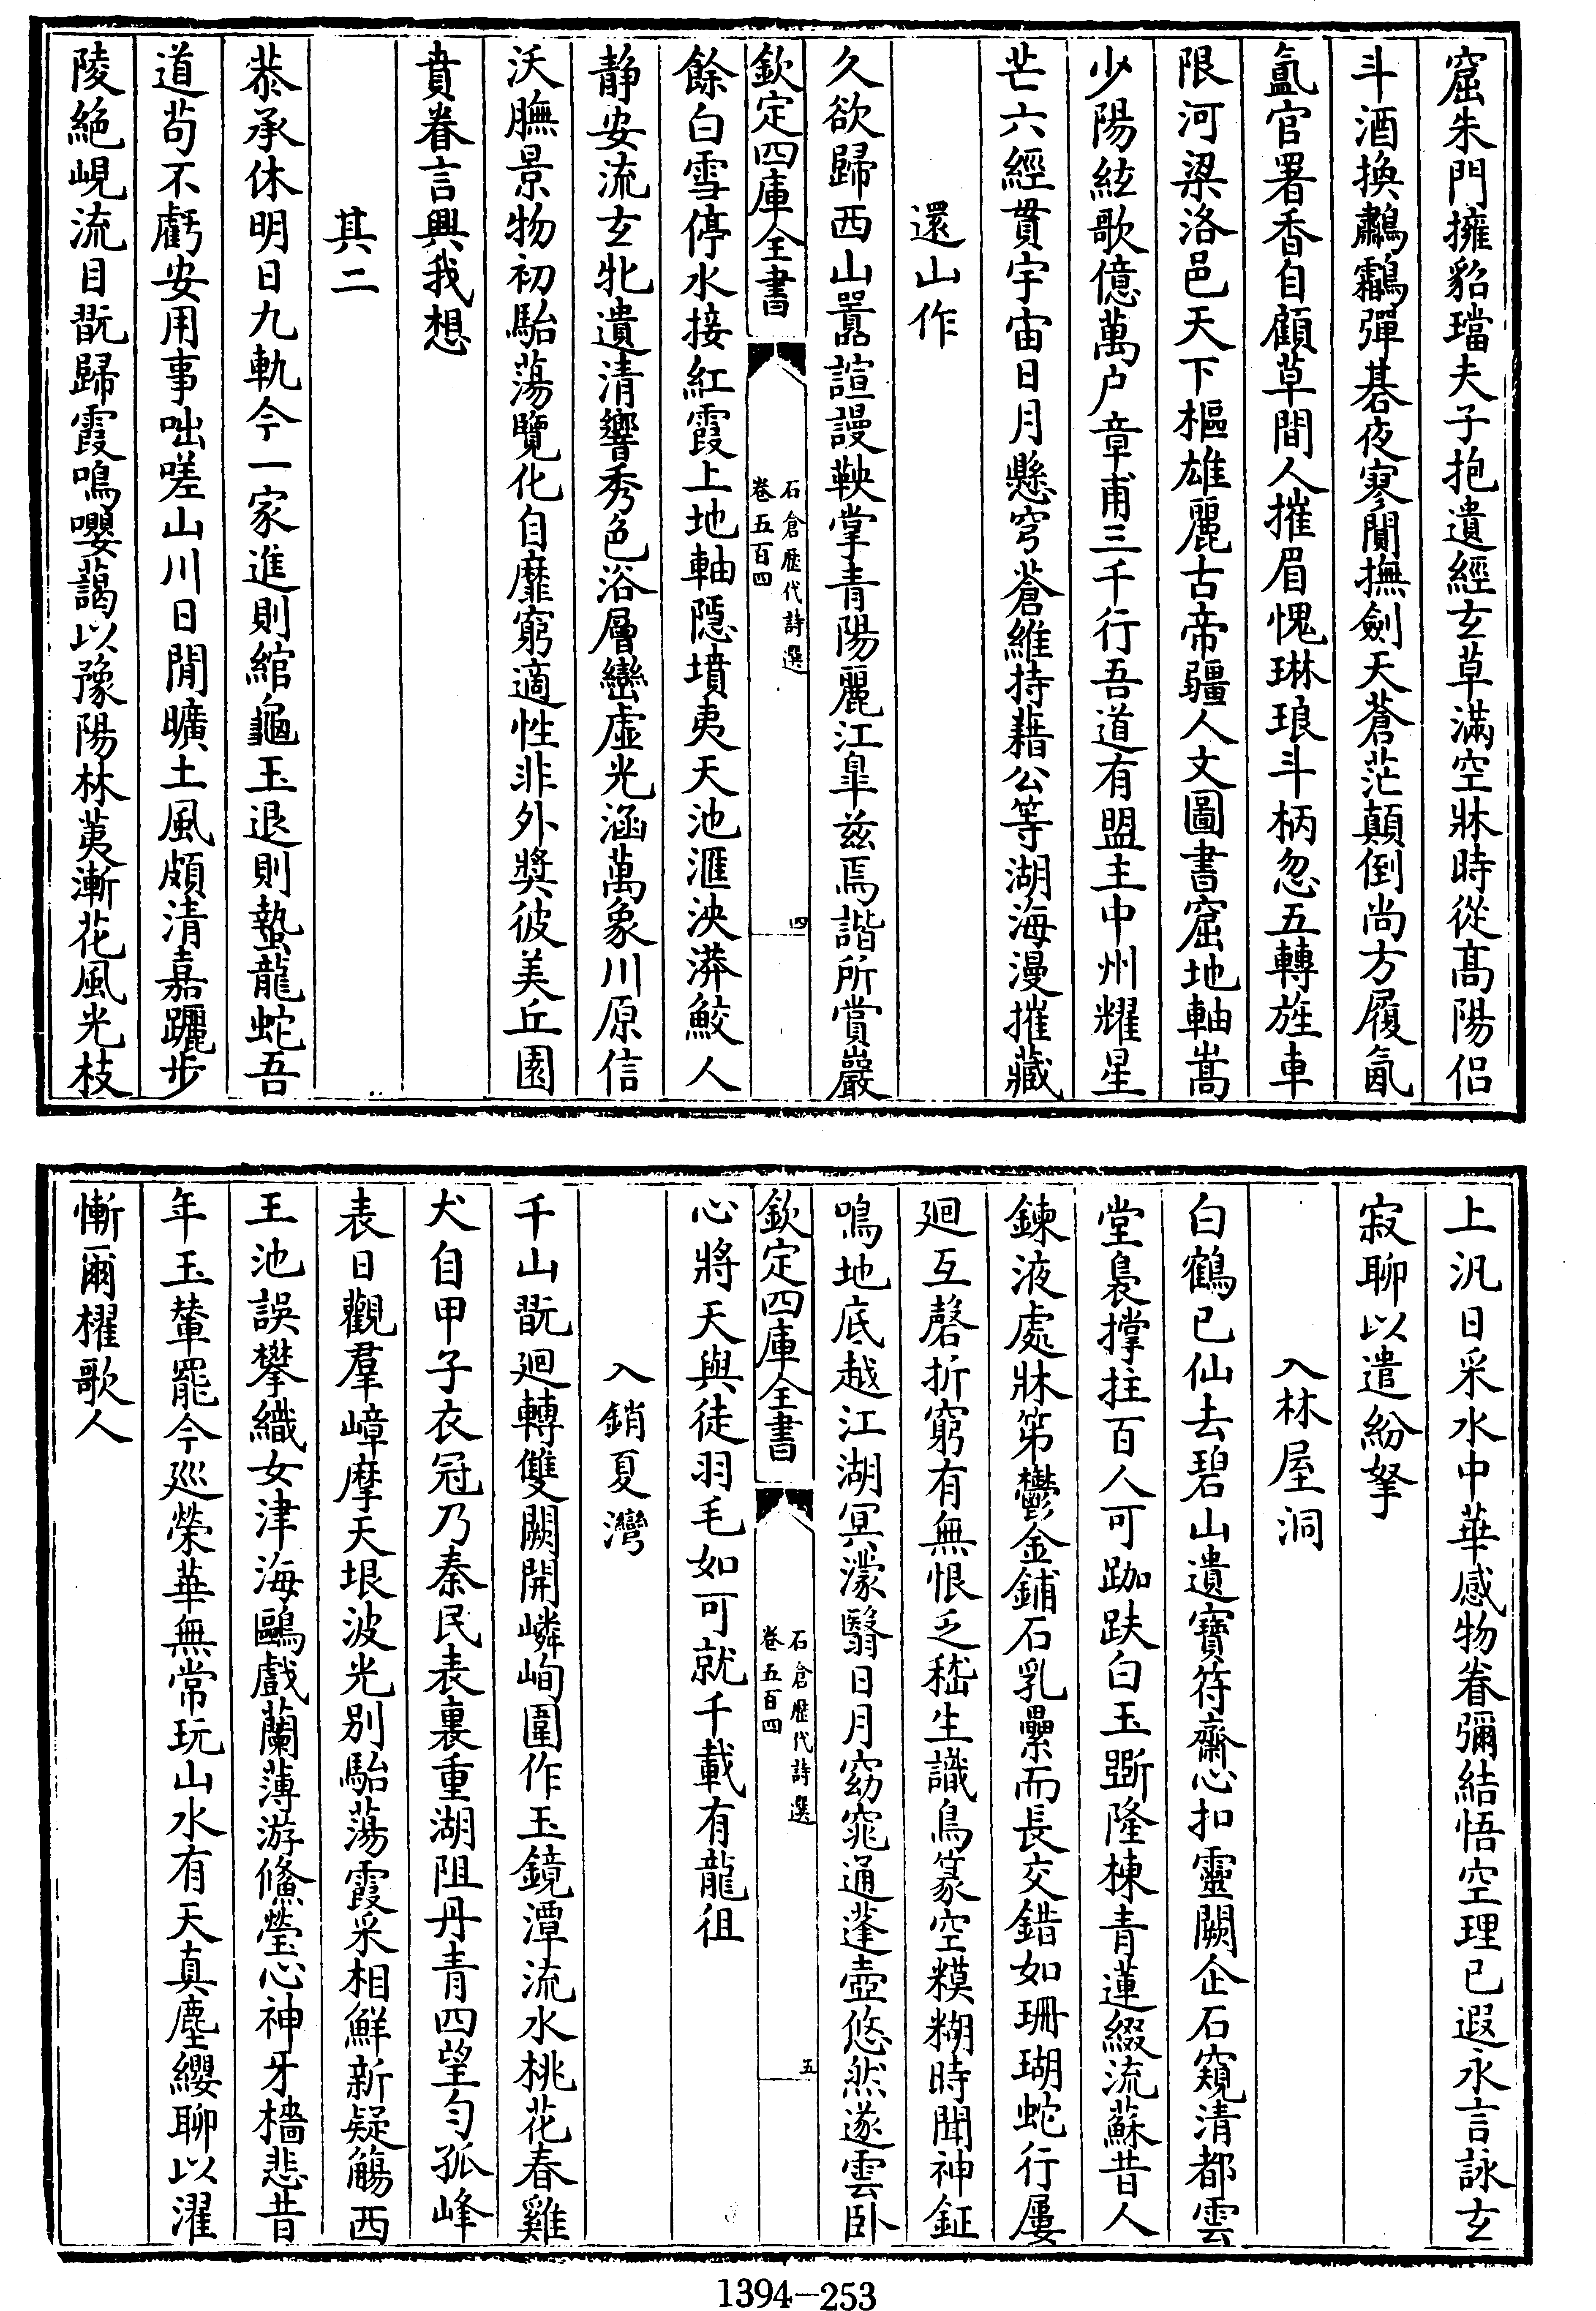 窟朱門擁貂璫夫子抱遺經玄草滿空牀時從髙陽侣
斗酒換鷫鸘彈碁夜寥閴撫劍天蒼茫顛倒尚方履氤
氳官署香自顧草間人摧眉愧琳琅斗柄忽五轉旌車
限河梁洛邑天下樞雄麗古帝疆人文圖書窟地軸嵩
少陽絃歌億萬户章甫三千行吾道有盟主中州耀星
芒六經貫宇宙日月懸穹蒼維持藉公等湖海漫摧藏
還山作
久欲歸西山囂諠謾鞅掌青陽麗江臯兹焉諧所賞巖
欽定四庫全書
石倉歴代詩選
卷五百四
四
餘白雪停水接紅霞上地軸隠墳夷天池滙泱漭鮫人
静安流玄牝遺清響秀色浴層巒虚光涵萬象川原信
沃膴景物初駘蕩覽化自靡窮適性非外奬彼美丘園
賁眷言興我想
其二
恭承休明日九軌今一家進則綰龜玉退則蟄龍蛇吾
道茍不虧安用事咄嗟山川日閒曠土風頗清嘉躧步
陵絶峴流目翫歸霞鳴嚶藹以豫陽林荑漸花風光枝
上汎日采水中華感物眷彌結悟空理已遐永言詠玄
寂聊以遣紛拏
入林屋洞
白鶴已仙去碧山遺寶符齋心扣靈闕企石窺清都雲
堂裊撑拄百人可跏趺白玉斲隆棟青蓮綴流蘇昔人
鍊液處牀笫鬱金鋪石乳纍而長交錯如珊瑚蛇行屢
廻互磬折窮有無恨乏嵇生識鳥篆空糢糊時聞神鉦
鳴地底越江湖冥濛翳日月窈窕通蓬壺悠然遂雲卧
欽定四庫全書
石倉歴代詩選
卷五百四
五
心將天與徒羽毛如可就千載有龍徂
入銷夏灣
千山翫廻轉雙闕開嶙峋圍作玉鏡潭流水桃花春雞
犬自甲子衣冠乃秦民表裏重湖阻丹青四望匀孤峰
表日觀羣嶂摩天垠波光别駘蕩霞采相鮮新疑觴西
王池誤攀織女津海鷗戲蘭薄游鯈瑩心神牙檣悲昔
年玉輦罷今廵榮華無常玩山水有天真塵纓聊以濯
慚爾櫂歌人
1394—253